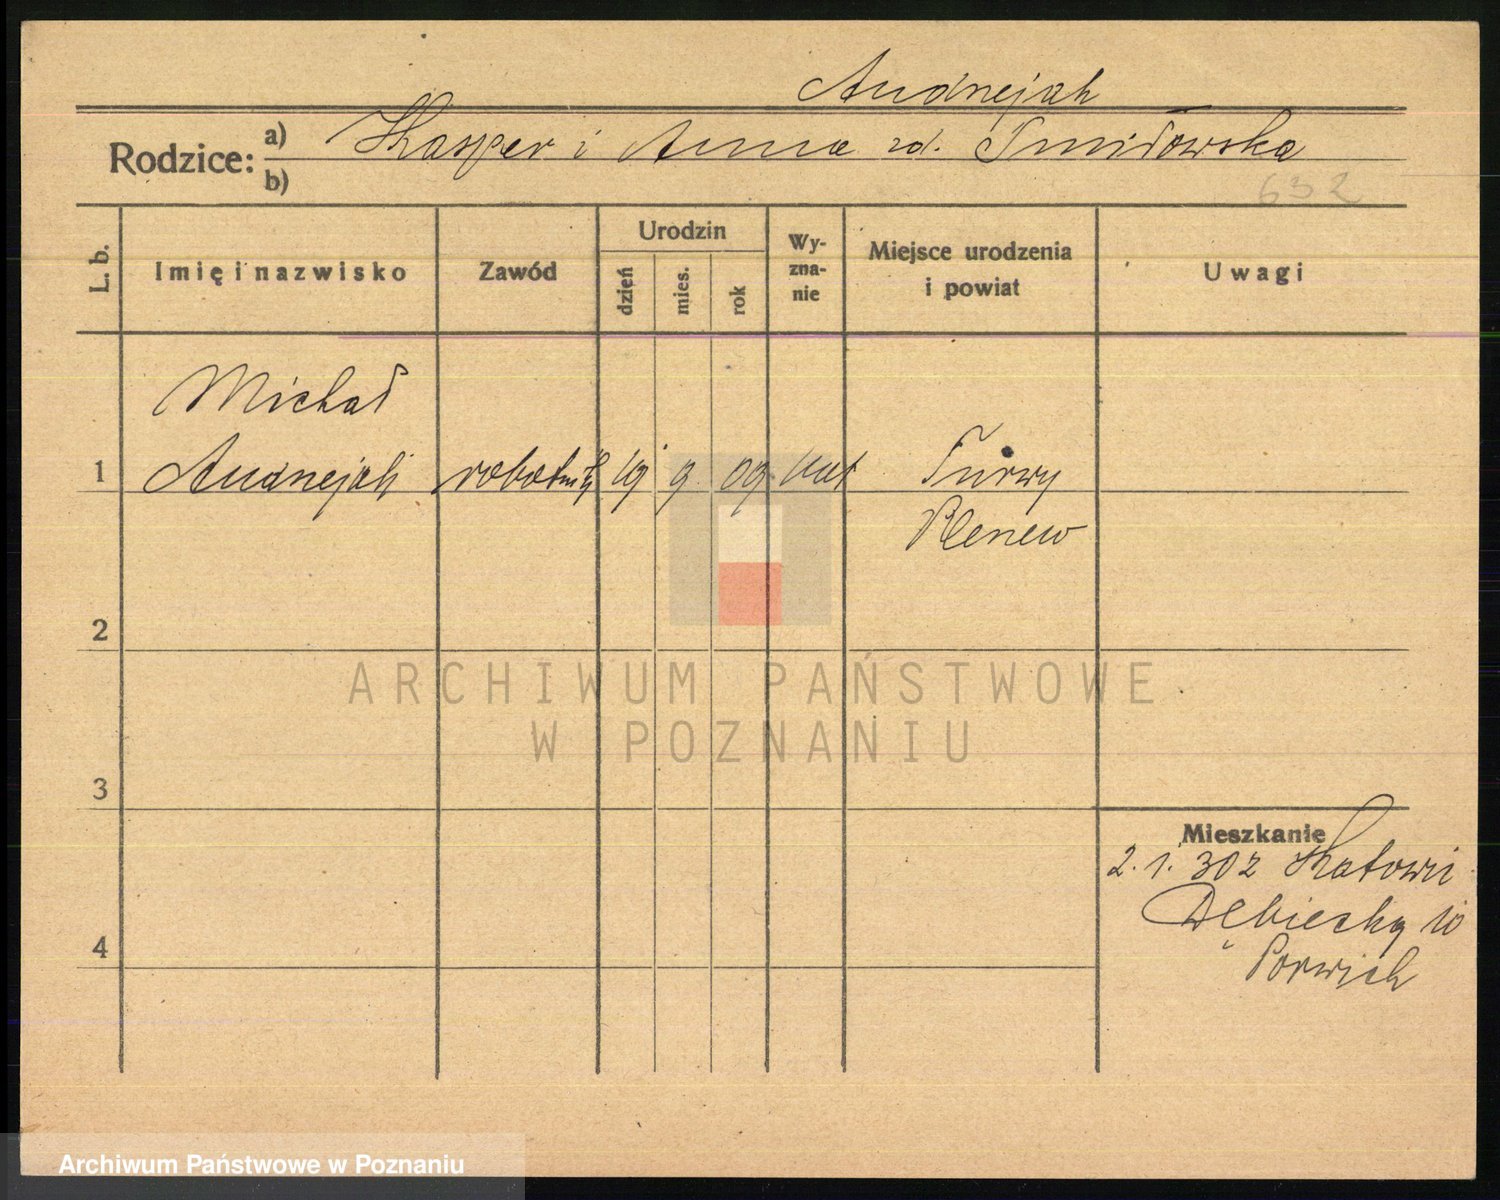 Andrzejak
Rodzice: a) Kasper i Anna zd. Smiłowska
b)
632
L. b.
Imię i nazwisko
Zawód
Urodzin
dzień
mies.
rok
Wy-
zna-
nie
Miejsce urodzenia
i powiat
Uwagi
Michał
1 Andrzejak robotnik 19 9 09 kat Turwy
2
ARCHIWUM PAŃSTWOWE
W POZNANIU
3
Mieszkanie
2. 1. 302
Dębiecka 10
4
Archiwum Państwowe w Poznaniu